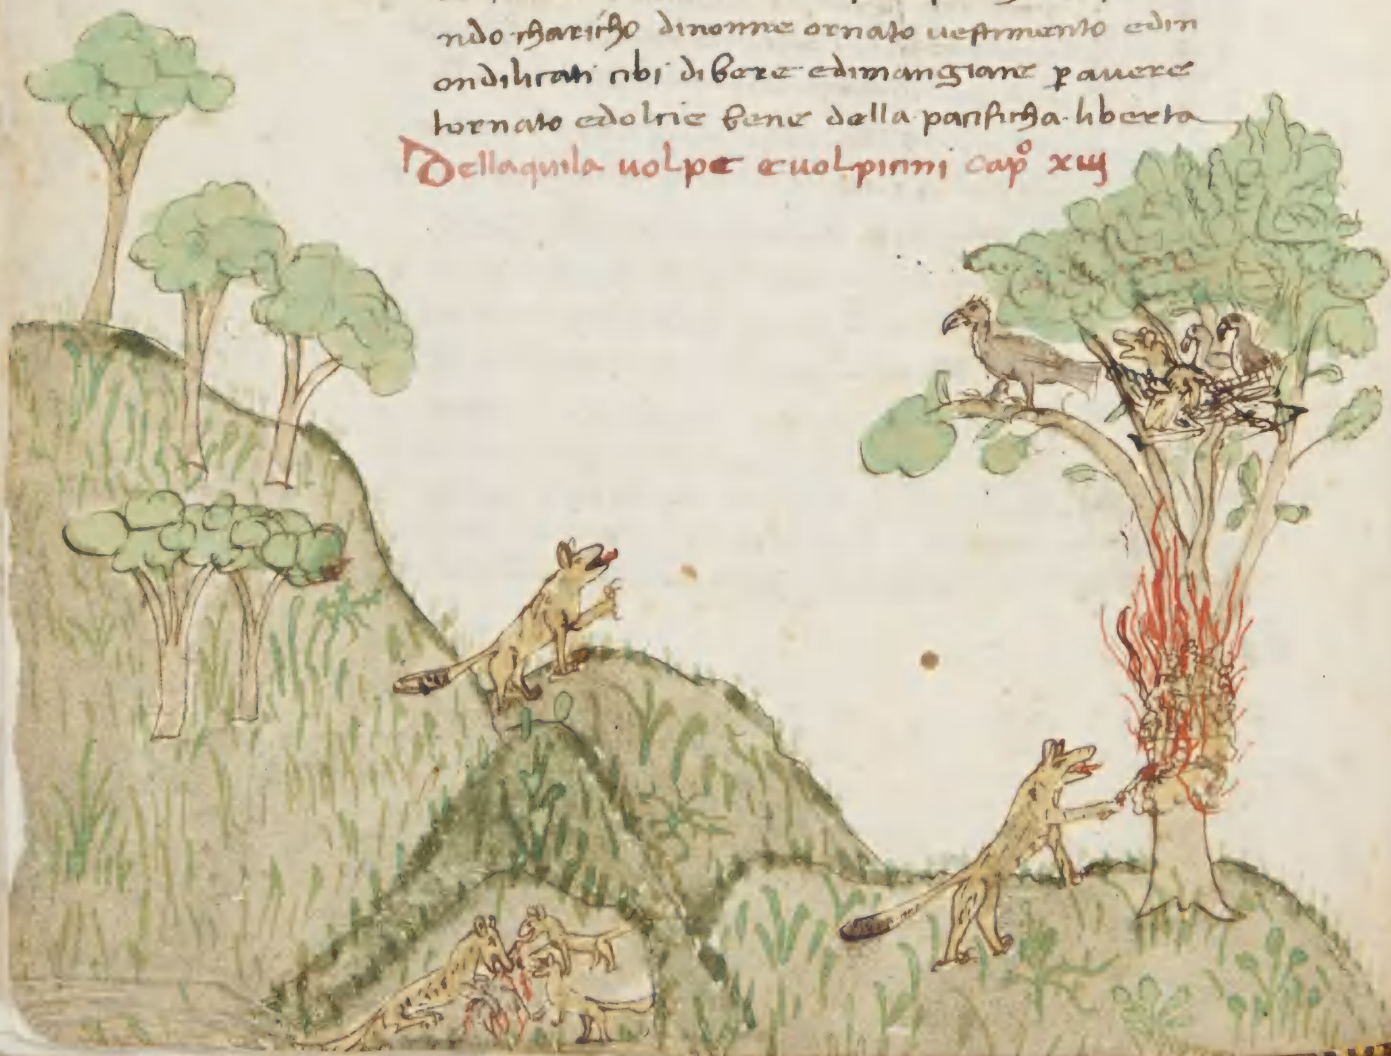 ndo charicho dinonne ornato uestimento edin
ondilicati cibi dibere edimangiare p auere
tornato edolcie bene della pacificha liberta
Dellaquila uolpe euolpicini capo xiiij